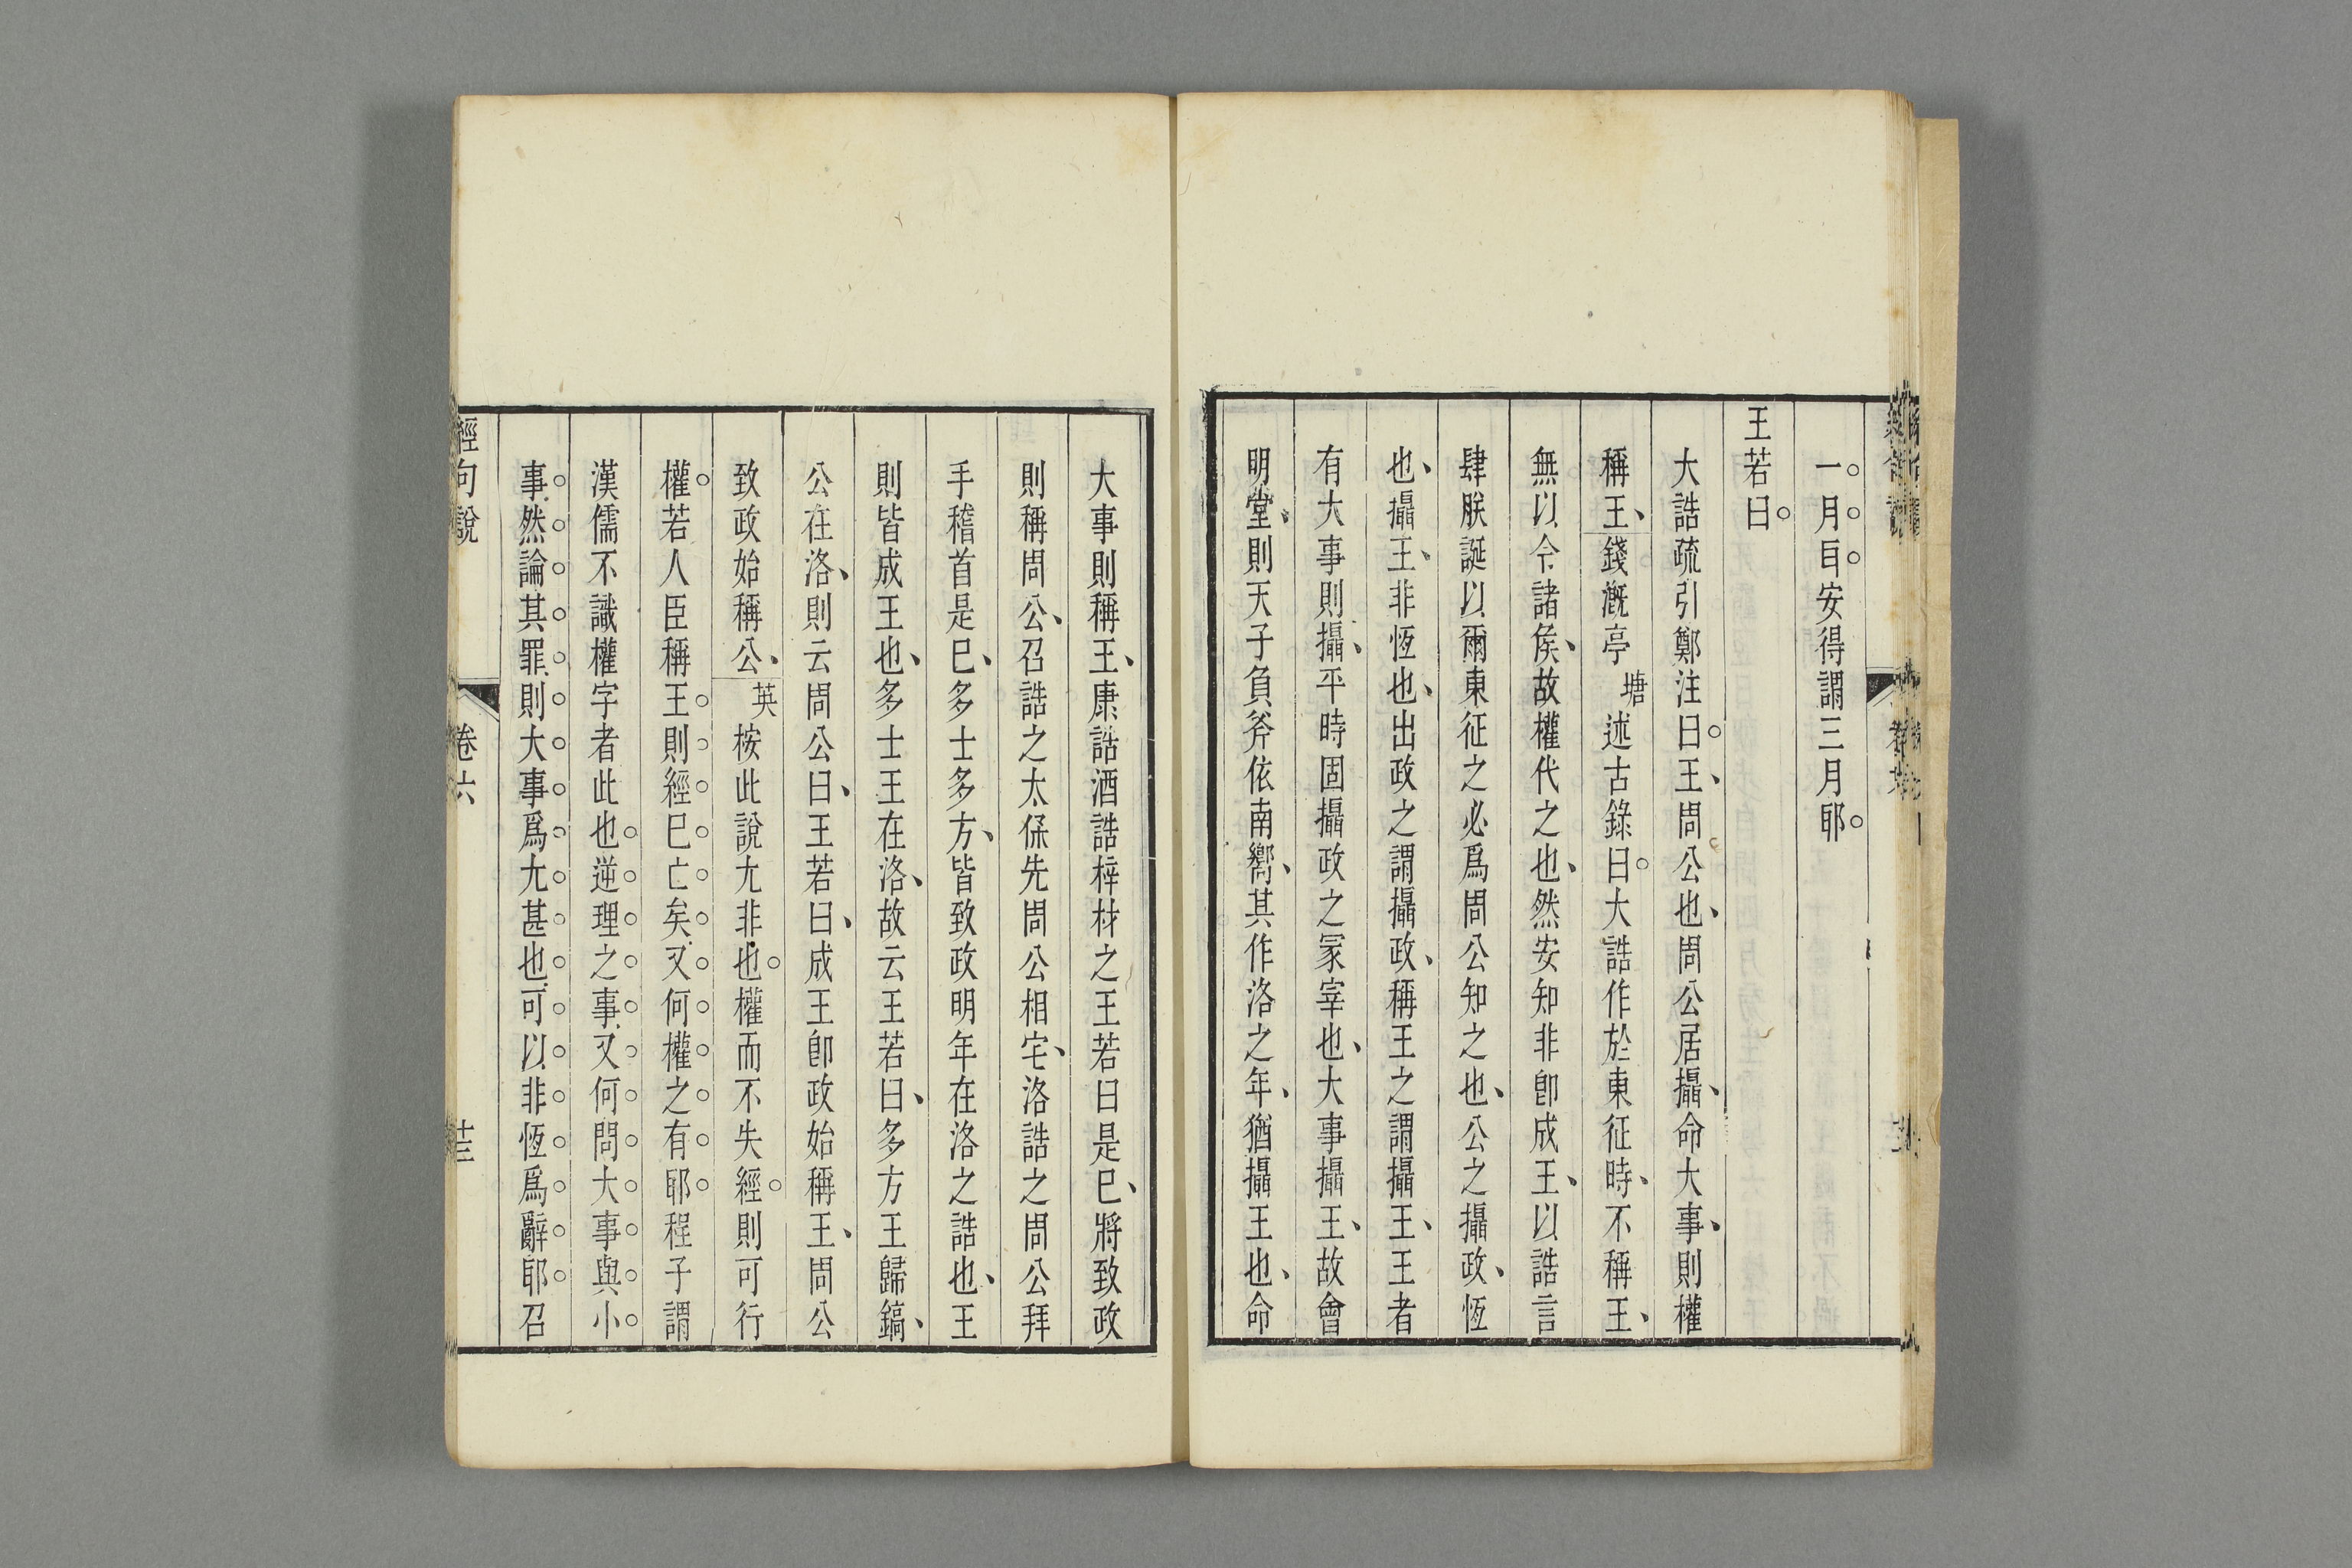 一月㠯安得謂三月耶
王若曰
大誥疏引鄭注曰王周公也周公居攝命大事則權
稱王錢漑亭塘述古錄曰大誥作於東征時不稱王
無以令諸侯故權代之也然安知非卽成王以誥言
肆朕誕以爾東征之必爲周公知之也公之攝政恆
也攝王非恆也出政之謂攝政稱王之謂攝王王者
有大事則攝平時固攝政之冢宰也大事攝王故會
明堂則天子負斧依南嚮其作洛之年猶攝王也命
大事則稱王康誥酒誥梓材之王若曰是巳將致政
則稱周公召誥之太保先周公相宅洛誥之周公拜
手稽首是巳多士多方皆致政明年在洛之誥也王
則皆成王也多士王在洛故云王若曰多方王歸鎬
公在洛則云周公曰王若曰成王卽政始稱王周公
致政始稱公英桉此說尢非也權而不失經則可行
權若人臣稱王則經巳亡矣又何權之有耶程子謂
漢儒不識權字者此也逆理之事又何問大事與小
事然論其罪則大事爲尢甚也可以非恆爲辭耶召
經句說 卷六 十三